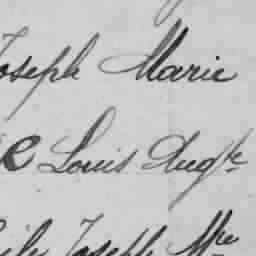 Joseph Marie
e Louis Aug^te
Joseph M^ie